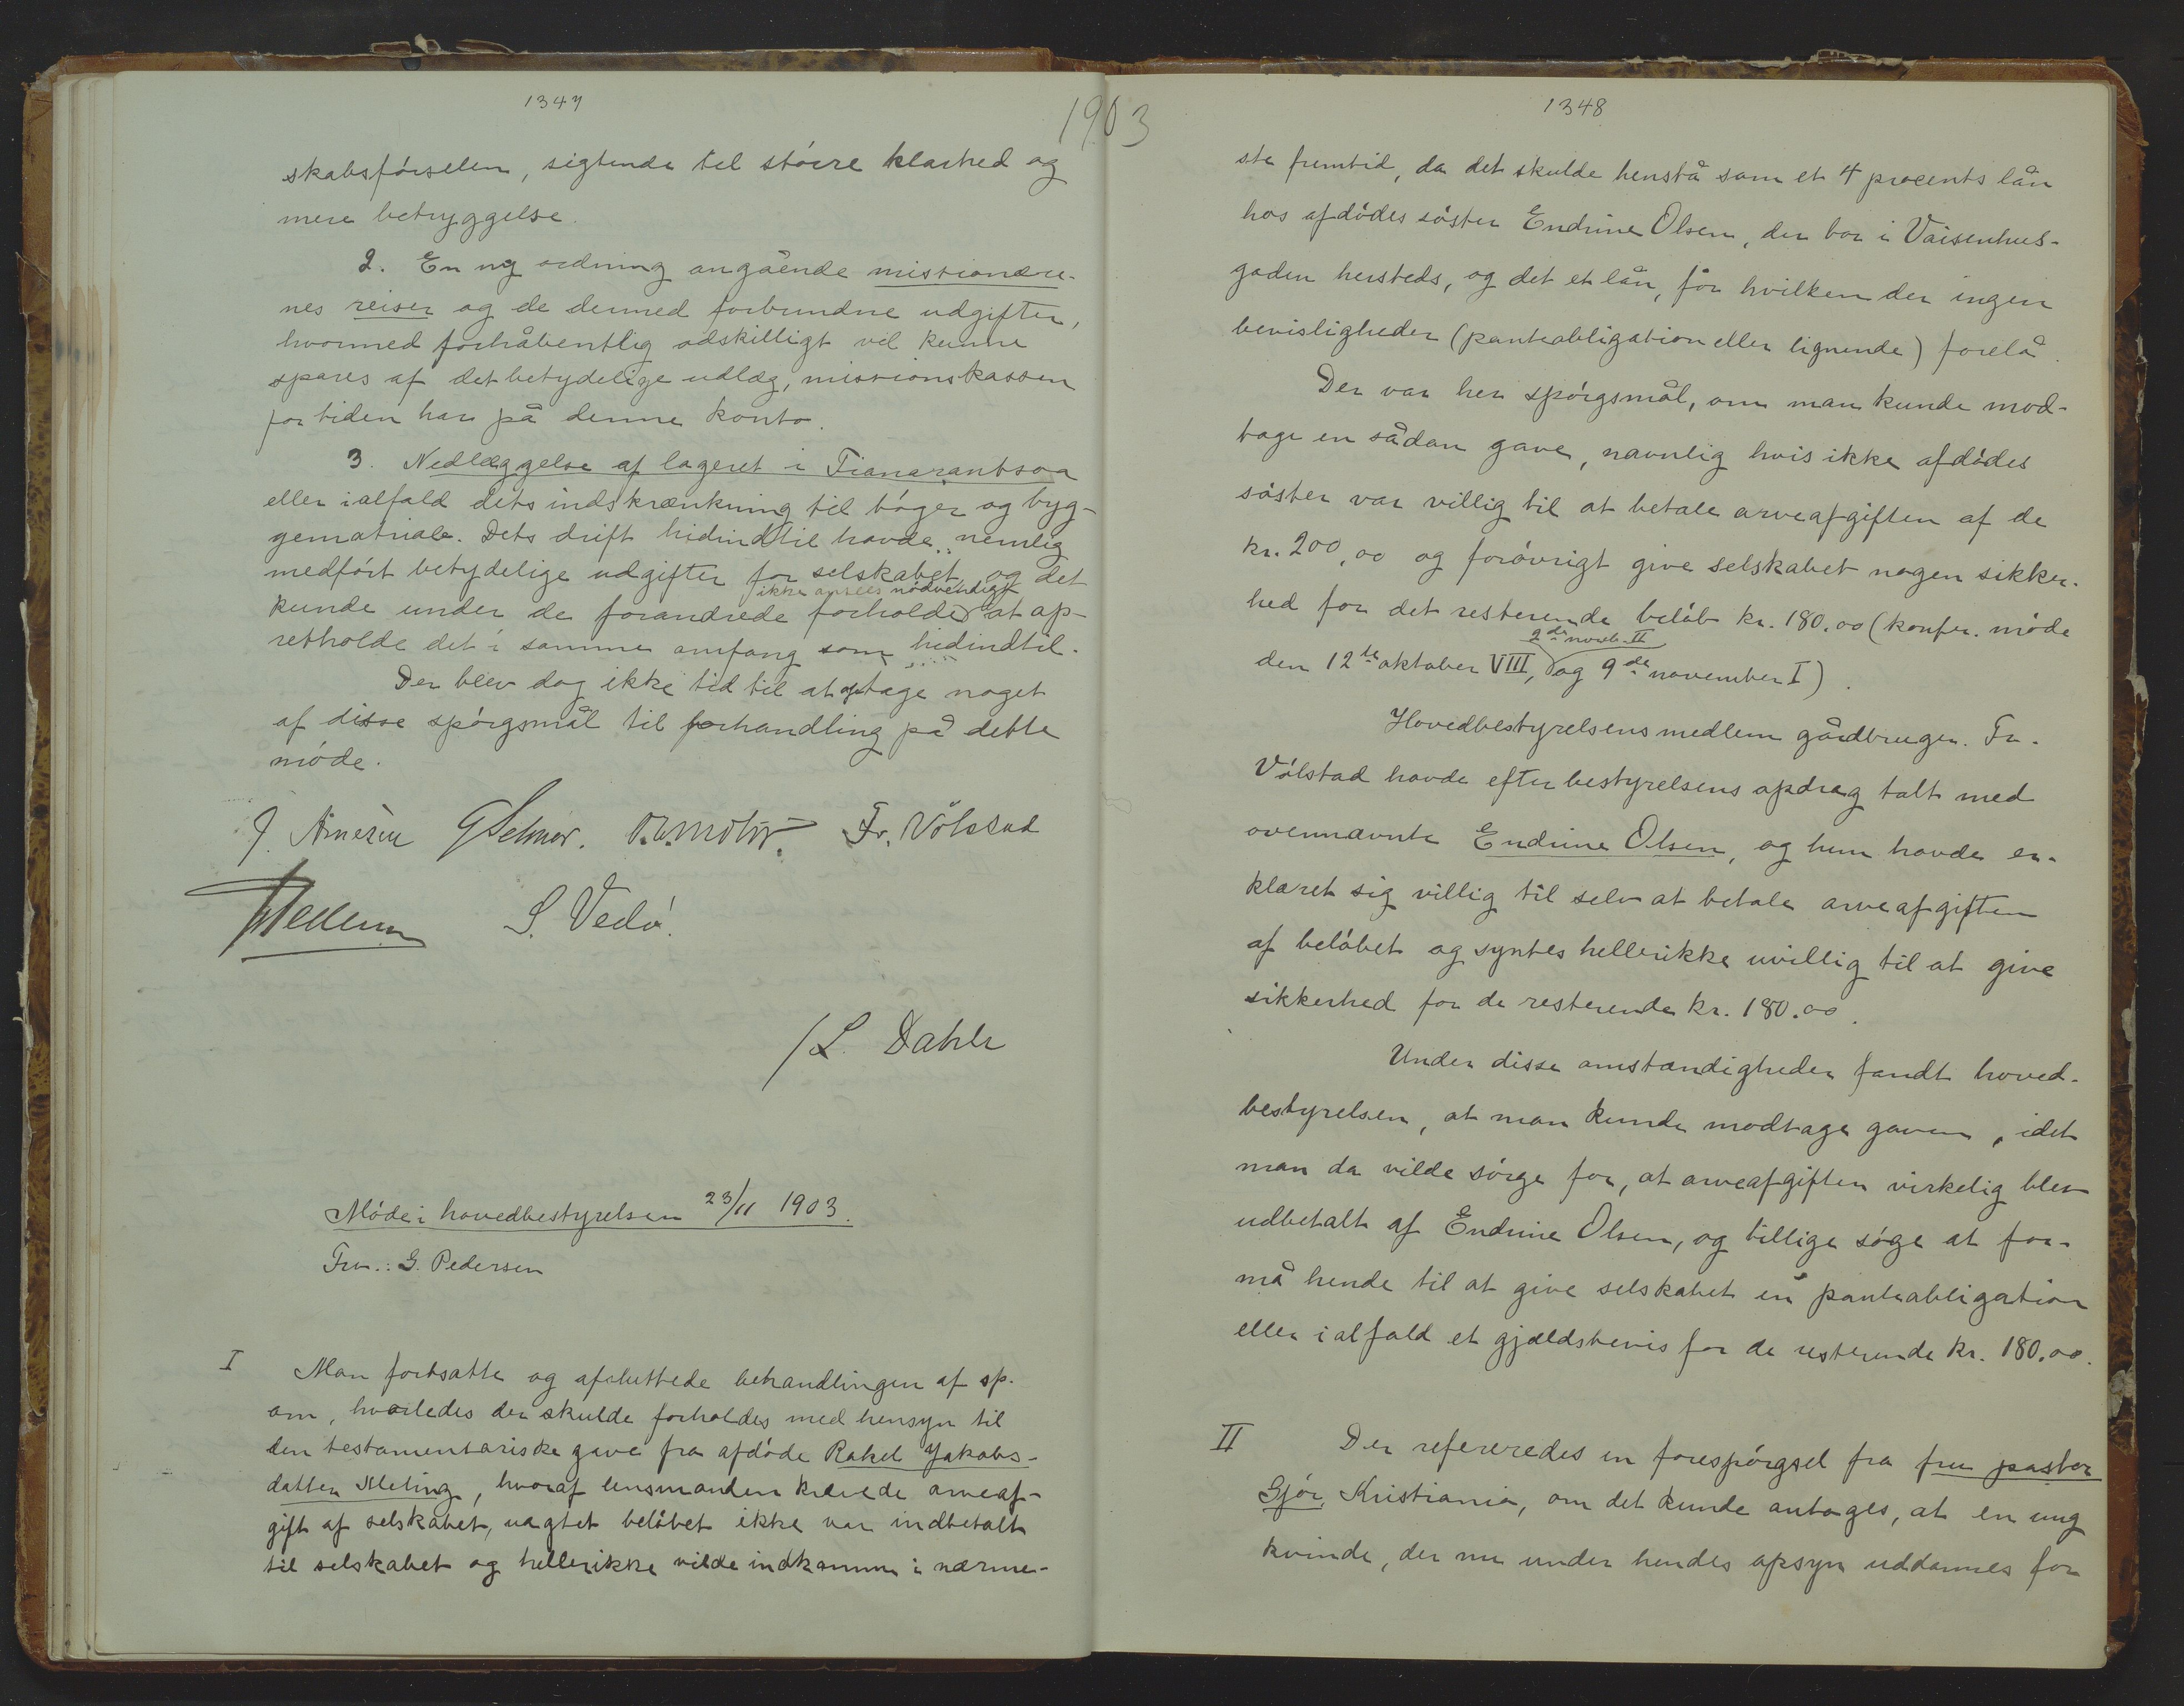 1347
1903
skabsførselen, sigtende til større klarhed og
mere betryggelse.
2. En ny ordning angående missionære-
nes reiser og de dermed forbundne udgifter,
hvormed forhåbentlig adskilligt vil kunne
spares af det betydelige udlæg, missionskassen
for tiden har på denne konto.
3. Nedlæggelse af lageret i Fianarantsoa
eller ialfald dets indskrænkning til bøger og byg-
gematriale. Dets drift hidindtil havde nemlig
medført betydelige udgifter for selskabet, og det
ikke ansees nødvendigt
kunde under de forandrede forholde at op-
retholde det i samme omfang som hidindtil.
Der blev dog ikke tid til at optage noget
af disse spørgsmål til forhandling på dette
møde.
J. Arnesen Fr. Vølstad
S. Vedø.
/L. Dahle
Møde i hovedbestyrelsen 23/11 1903.
Frv.: G. Pedersen
I Man fortsatte og afsluttede behandlingen af sp.
om, hvorledes der skulde forholdes med hensyn til
den testamentariske gave fra afdøde Rakel Jakobs-
datter Meling, hvoraf lensmanden krævede arveaf-
gift af selskabet, uagtet beløbet ikke var indbetalt
til selskabet og hellerikke vilde indkomme i nærme-
1348
ste fremtid, da det skulde henstå som et 4 procents lån
hos afdødes søster Endrine Olsen, der bor i Vaisenhus-
gaden hersteds, og det et lån, for hvilken der ingen
bevisligheder (panteobligation eller lignende) forelå.
Der var her spørgsmål, om man kunde mod-
tage en sådan gave, navnlig hvis ikke afdødes
søster var villig til at betale arveafgiften af de
kr. 200,00 og forøvrigt give selskabet nogen sikker-
hed for det resterende beløb kr. 180.00 (konfr. møde
2de novb. II
den 12te oktober VIII, og 9de november I).
Hovedbestyrelsens medlem gårdbruger Fr.
Vølstad havde efter bestyrelsens opdrag talt med
ovennævnte Endrine Olsen, og hun havde er-
klæret sig villig til selv at betale arveafgiften
af beløbet og syntes hellerikke uvillig til at give
sikkerhed for de resterende kr. 180.00.
Under disse omstændigheder fandt hoved-
bestyrelsen, at man kunde modtage gaven, idet
man da vilde sørge for, at arveafgiften virkelig blev
udbetalt af Endrine Olsen, og tillige søge at for-
må hende til at give selskabet en panteobligation
eller ialfald et gjældsbevis for de resterende kr. 180.00.
II Der refereredes en forespørgsel fra fru pastor
Gjør, Kristiania, om det kunde antages, at en ung
kvinde, der nu under hendes opsyn uddannes for